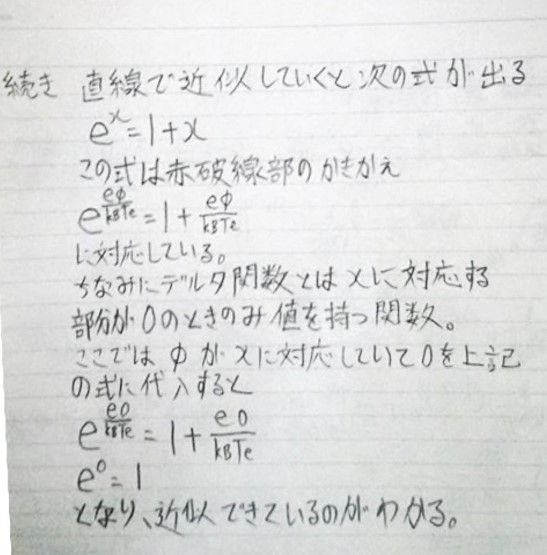 続き 直線で近似していくと次の式が出る
e^x=1+x
この式は赤破線部のかきかえ
e^(eφ/kBTe)=1+eφ/kBTe
に対応している。
ちなみにデルタ関数とはxに対応する
部分が0のときのみ値を持つ関数。
ここではφがxに対応していて0を上記
の式に代入すると
e^(e0/kBTe)=1+e0/kBTe
e^0=1
となり、近似できているのがわかる。